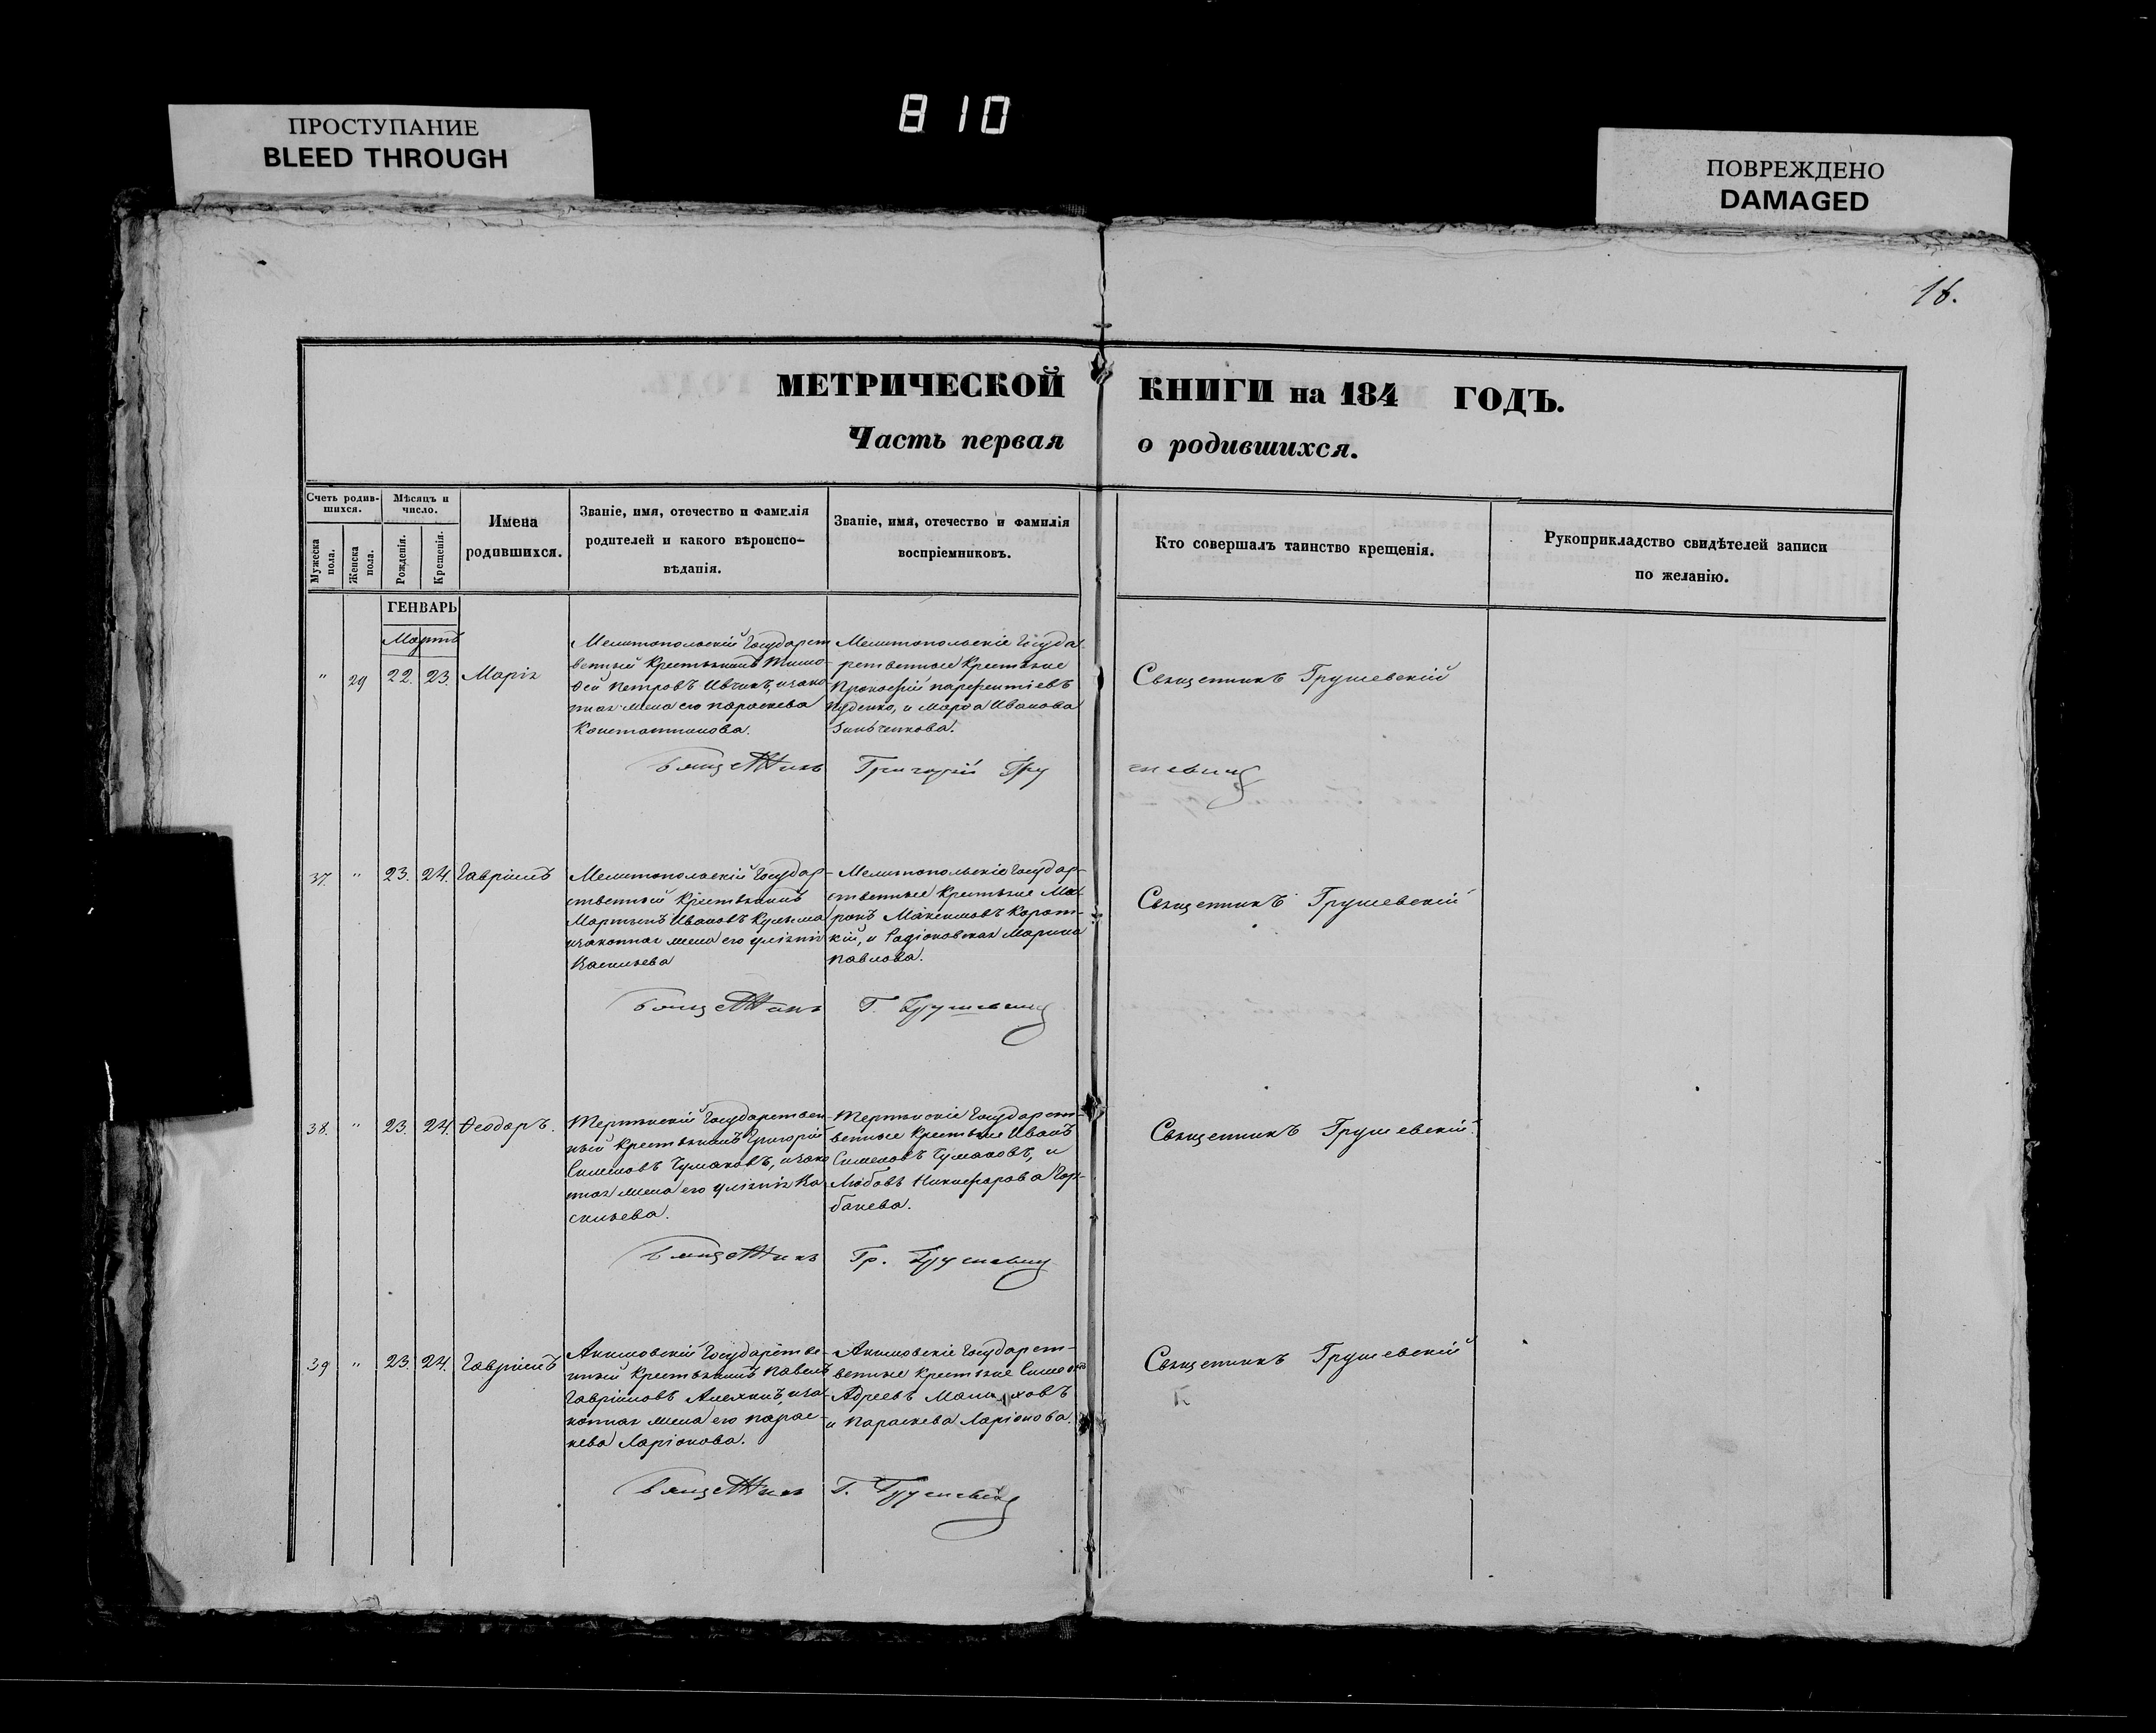 810
ПРОСТУПАНИЕ
BLEED THROUGH
ПОВРЕЖДЕНО
DAMAGED
16.
МЕТРИЧЕСКОЙ КНИГИ на 184 ГОДЪ.
Часть первая о родившихся.
Счетъ родив-
шихся.
Мужеска пола.
Женска пола.
Мѣсяцъ и
число.
Рожденія.
Крещенія.
Имена
родившихся.
Званіе, имя, отечество и фамилія
родителей и какого вѣроиспо-
вѣданія.
Званіе, имя, отечество и фамилія
воспріемниковъ.
Кто совершалъ таинство крещенія.
Рукоприкладство свидѣтелей записи
по желанію.
ГЕНВАРЬ
Мартъ
" 29 22. 23. Марія
Мелитопольскій Государст
венный Крестьянинъ Тимо-
ѳей Петровъ Ивчикъ, и зако-
ная жена его Параскева
Константинова.
Мелитопольскіе Госуда
рственные Крестьяне
Прокофій Парфентіевъ
и Марѳа Иванова
Зинченкова.
Священникъ Грушевскій
Священникъ Григорій Грушевскій
37. " 23. 24. Гавріилъ
Мелитопольскій Государ-
ственный Крестьянинъ
Мартынъ Ивановъ Кулима
и законная жена его Уліянія
Васильева
Мелитопольскіе Государ-
ственные Крестьяне Ма-
ронъ Максимовъ Корот-
кій, и Радіоновская Марина
Павлова.
Священникъ Грушевскій
Священникъ Г. Грушевскій
38. " 23. 24. Ѳеодоръ.
Терпѣнскій Государствен-
ный Крестьянинъ Григорій
Симеоновъ Чумаковъ, и зако
ная жена его Уліянія Ва
сильева.
Терпѣнскіе Государст-
венные Крестьяне Иванъ
Симеоновъ Чумаковъ, и
Любовь Никифорова Гор-
бачева.
Священникъ Грушевскій.
Священникъ Гр. Грушевскій
39 " 23. 24. Гавріилъ
Акимовскій Государстве-
нный Крестьянинъ Павелъ
Гавріиловъ Алехинъ, и за-
конная жена его Парас-
кева Ларіонова.
Акимовскіе Государст-
венные Крестьяне Симеонъ
Адреевъ
и Параскева Ларіонова.
Священникъ Грушевскій
Священникъ Г. Грушевскій